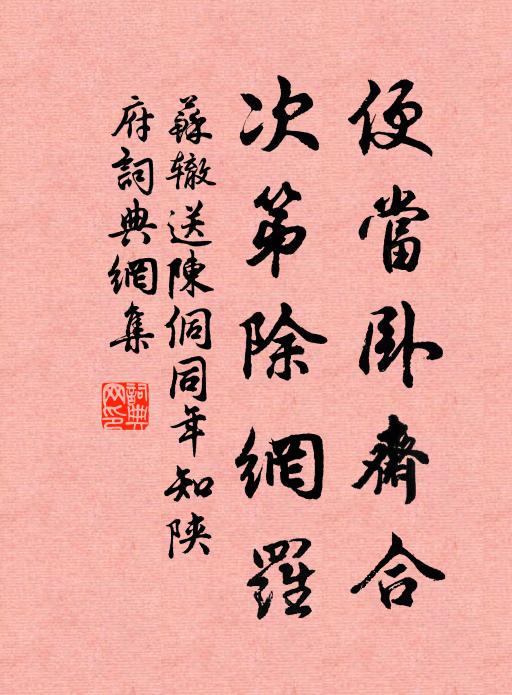 便當臥齋合
次第除網羅
蘇辙送陳侗同年知陝
府詞典網集
詞典网印